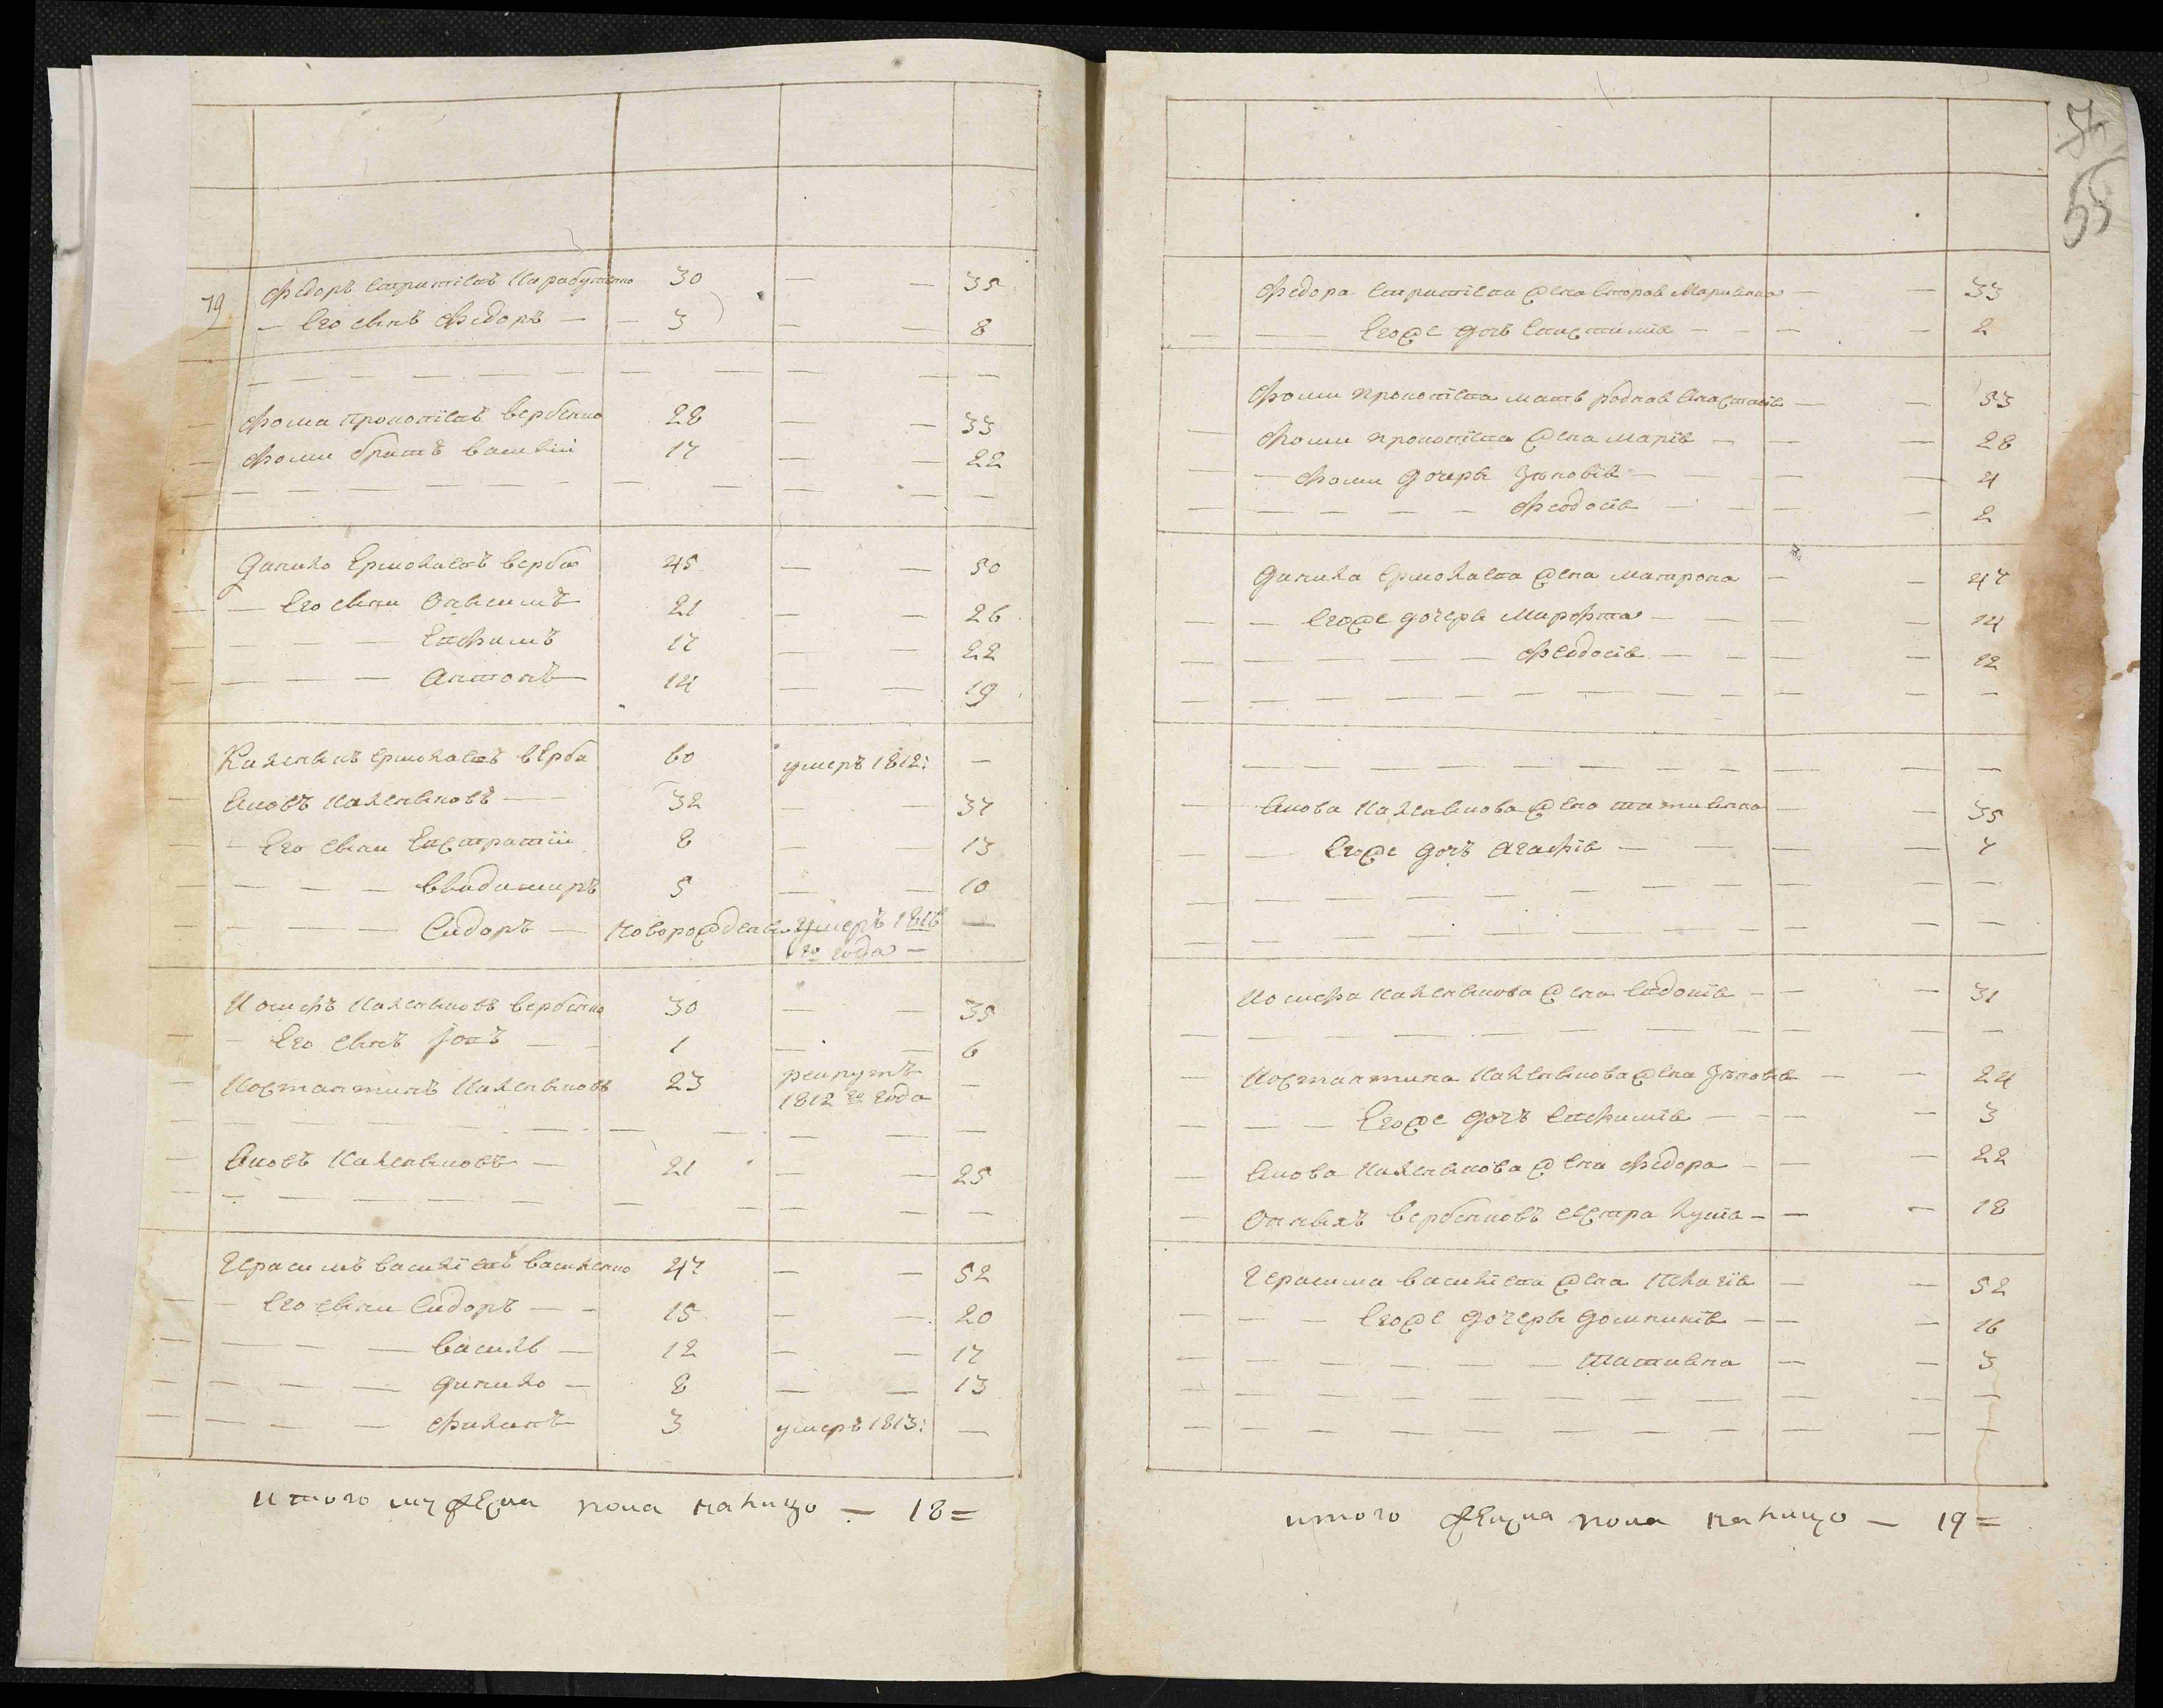 19
Федоръ Евтратіевъ Карабутенко 30 — — 35
— Его сынъ Федоръ — — 3 — — 8
Фома Прокопіевъ Вербенко 28 — — 33
Фомы братъ Василій 17 — — 22
Данило Ермолаевъ Верба 45 — — 50
— Его сыны Онисимъ 21 — — 26
— — — Евфимъ 17 — — 22
— — — — Антонъ 14 — — 19
Ермолаевъ Верба 60 умеръ 1812: —
Яковъ — 32 — — 37
— Его сыны Евстратій 8 — — 13
— — — — Владимиръ 5 — — 10
— — — — Сидоръ — новорожденъ умеръ 1816
го года —
Иосифъ Вербенко 30 — — 35
— Его сынъ — — 1 — — 6
Костантинъ 23 рекрутъ —
1812 го года
Яковъ — 21 — — 25
Герасимъ Василіевъ Василенко 47 — — 52
— Его сыны Сидоръ — — 15 — — 20
— — — — Василь — 12 — — 17
— — — — Данило — 8 — — 13
— — — — Филипъ 3 умеръ 1813: —
итого мужеска пола налицо — 18 =
55
Федора Евтратіева жена вторая Маріянна — — 33
— — — Егоже дочь Евстиміа — — — — 2
Фомы Прокопіева мать родная Анастасіа — — 53
— Фомы Прокопіева жена Маріа — — — 28
— — Фомы дочери Зѣновіа — — — — 4
— — — — — — Феодосіа — — — — 2
Данила Ермолаева жена Матрона — — 47
— — — Егоже дочери Марфта — — — — 14
— — — — — — Феодосіа — — — — 12
— Якова жена Татианна — — 35
— — Егоже дочь Агафіа — — — — 7
Иосифа жена Евдокіа — — — 31
— Костантина жена Зѣновіа — — 24
— — — — Егоже дочь Евфиміа — — — — 3
— Якова жена Федора — — — 22
— Вербенковъ сестра Луціа — — — 18
Герасима Василіева жена Пелагіа — — 52
— — — Егоже дочери Домникіа — — — 16
— — — — — — Татианна — — 3
итого женска пола налицо — 19 =